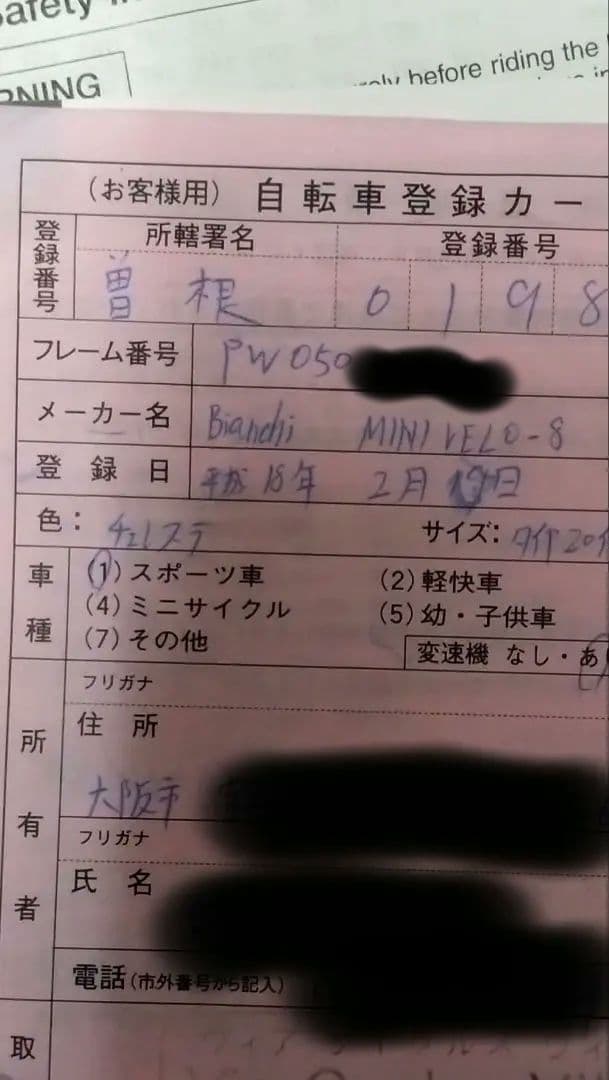 afety in
RNING
ely before riding the
(お客様用) 自転車登録カー
登録番号 所轄署名 登録番号
曽根 0198
フレーム番号 PW050
メーカー名 Bianchi MINI VELO-8
登録日 平成18年 2月 日
色: チェレステ サイズ:
車種 (1)スポーツ車 (2)軽快車
(4)ミニサイクル (5)幼・子供車
(7)その他
変速機 なし・あ
所有者
フリガナ
住所
大阪市
フリガナ
氏名
電話(市外番号から記入)
取